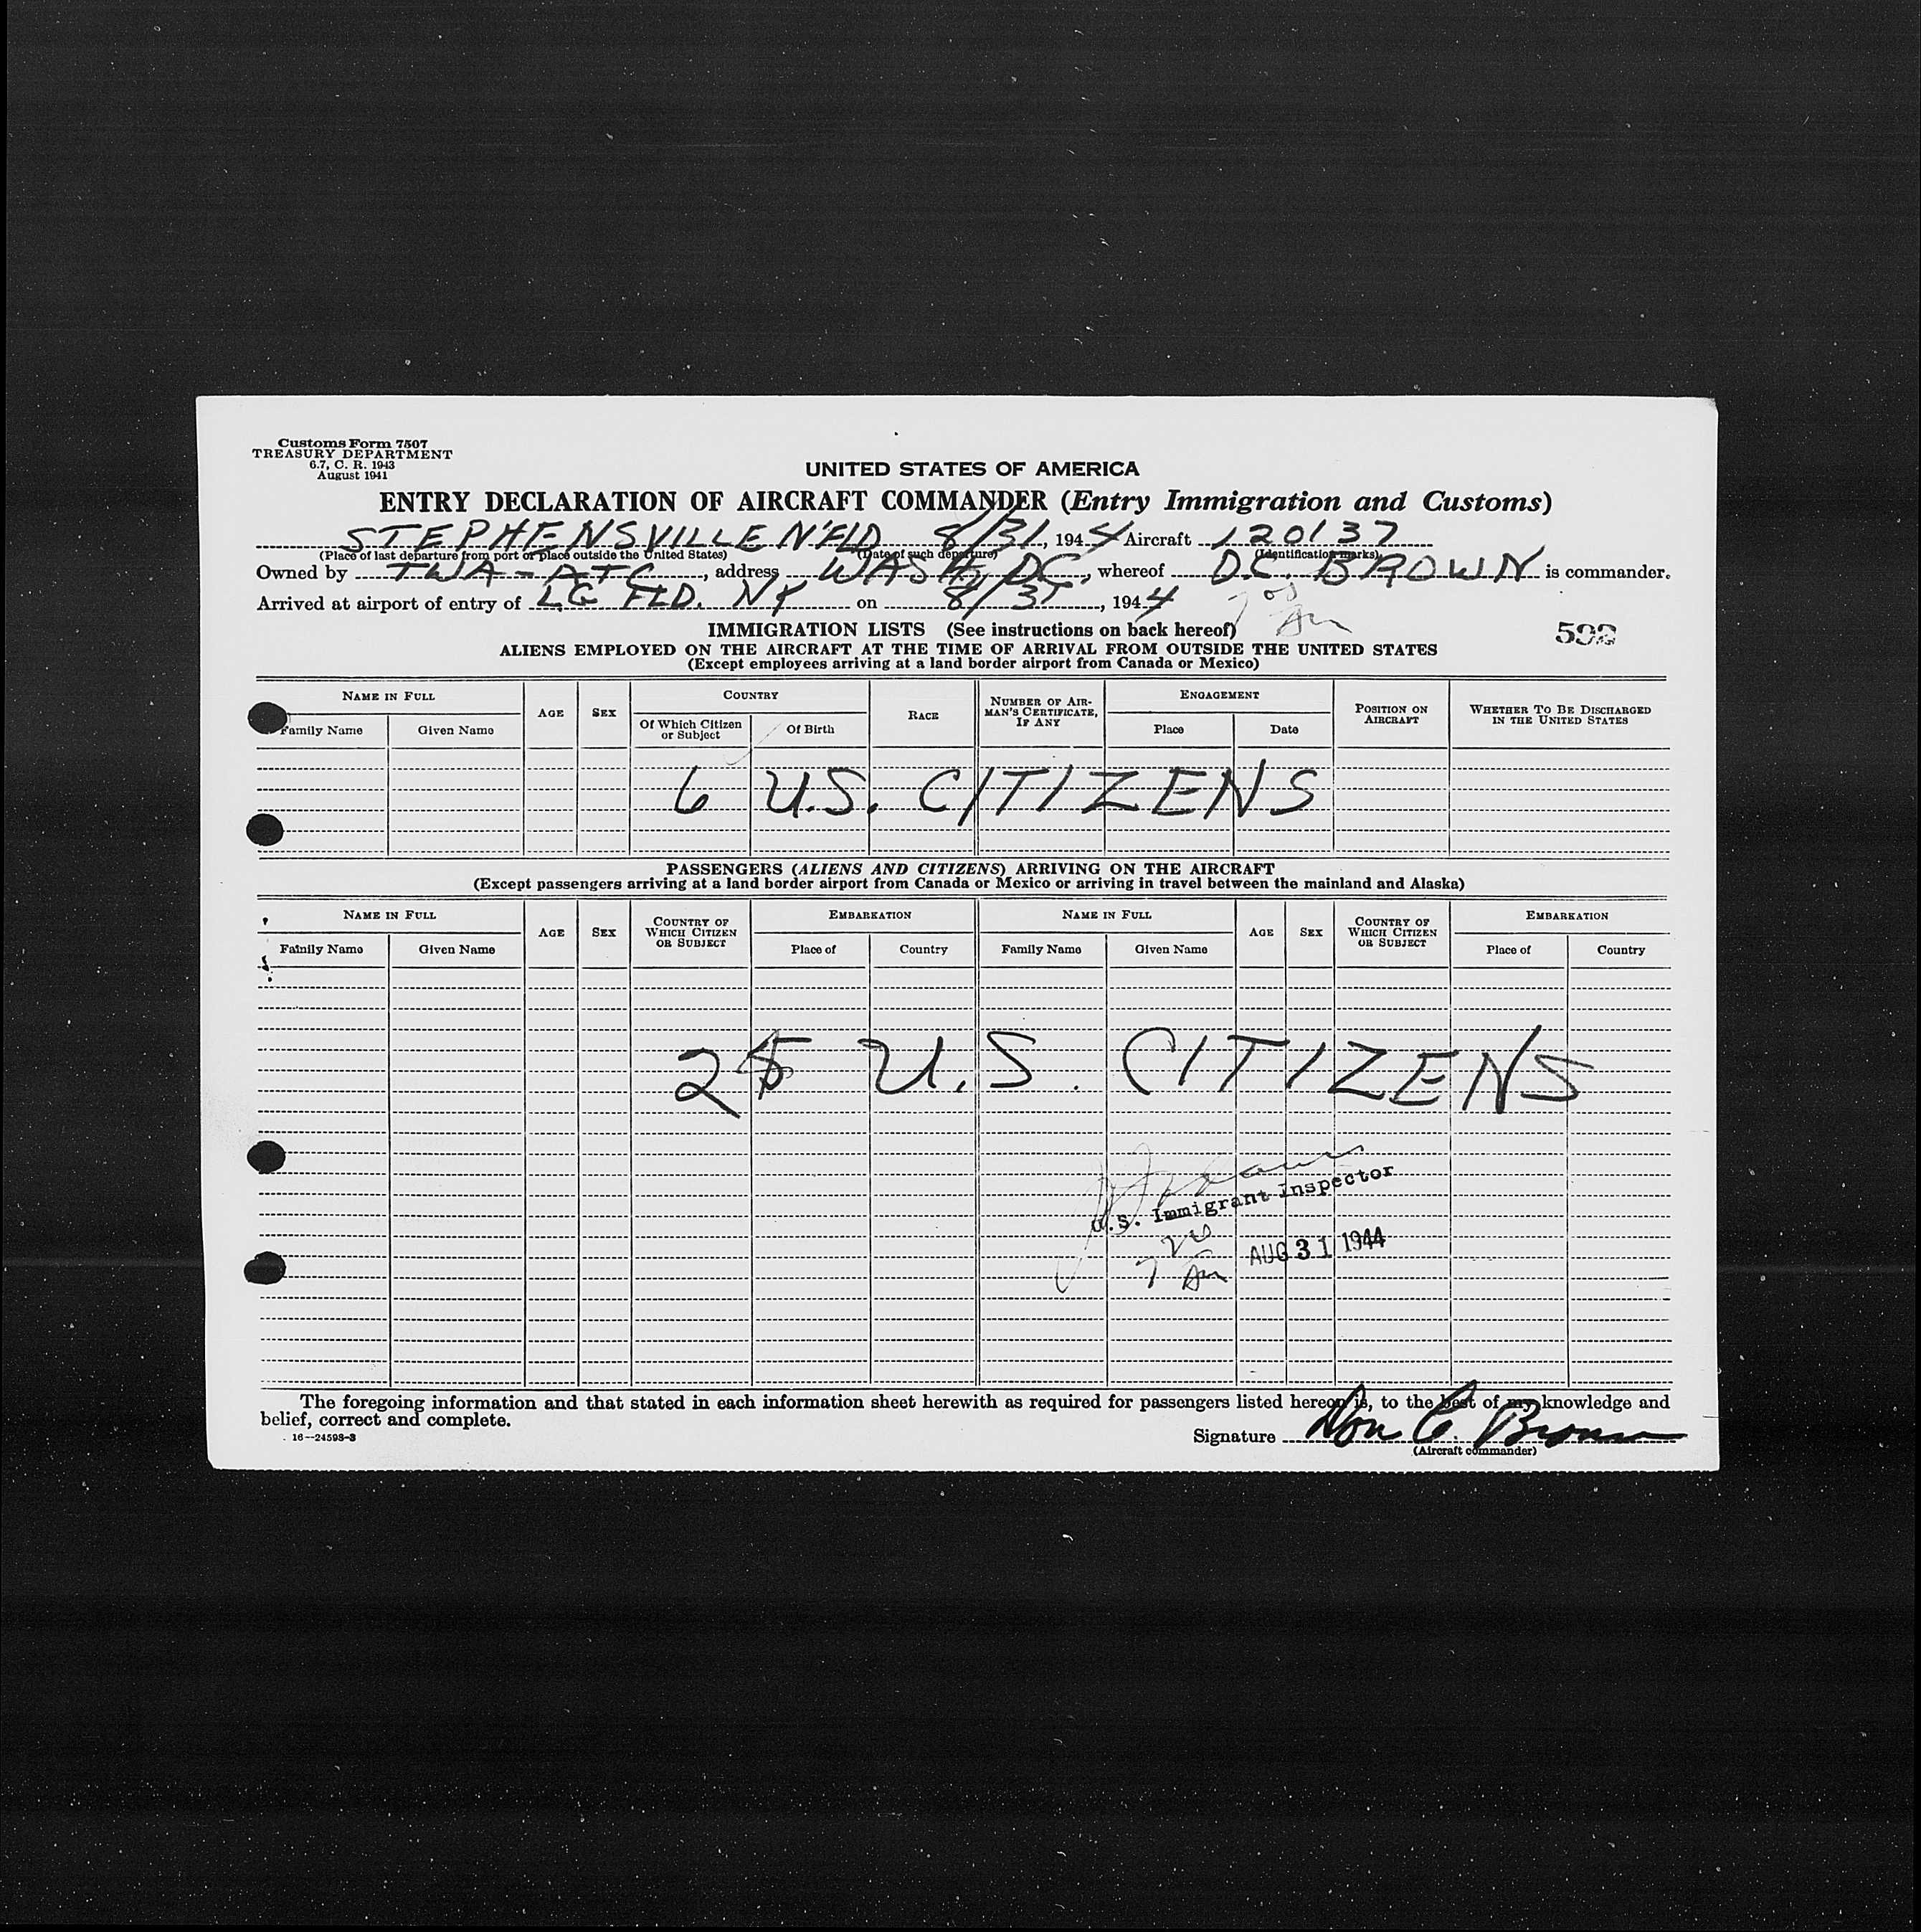 Customs Form 7507
TREASURY DEPARTMENT
6.7, C. R. 1943
August 1941
UNITED STATES OF AMERICA
ENTRY DECLARATION OF AIRCRAFT COMMANDER (Entry Immigration and Customs)
STEPHENSVILLE N'FLD 8/31, 1944 Aircraft 120137
(Place of last departure from port or place outside the United States) (Date of such departure) (Identification marks)
Owned by TWA-ATC, address WASH, DC, whereof D.C. BROWN is commander.
Arrived at airport of entry of LG FLD. NY on 8/31, 1944
IMMIGRATION LISTS (See instructions on back hereof)
ALIENS EMPLOYED ON THE AIRCRAFT AT THE TIME OF ARRIVAL FROM OUTSIDE THE UNITED STATES
(Except employees arriving at a land border airport from Canada or Mexico)
NAME IN FULL AGE SEX COUNTRY RACE NUMBER OF AIRMAN'S CERTIFICATE, IF ANY ENGAGEMENT POSITION ON AIRCRAFT WHETHER TO BE DISCHARGED IN THE UNITED STATES
Family Name Given Name Of Which Citizen or Subject Of Birth Place Date
6 U.S. CITIZENS
PASSENGERS (ALIENS AND CITIZENS) ARRIVING ON THE AIRCRAFT
(Except passengers arriving at a land border airport from Canada or Mexico or arriving in travel between the mainland and Alaska)
NAME IN FULL AGE SEX COUNTRY OF WHICH CITIZEN OR SUBJECT EMBARKATION NAME IN FULL AGE SEX COUNTRY OF WHICH CITIZEN OR SUBJECT EMBARKATION
Family Name Given Name Place of Country Family Name Given Name Place of Country
U.S. CITIZENS
U.S. Immigrant Inspector
AUG 31 1944
The foregoing information and that stated in each information sheet herewith as required for passengers listed hereon is, to the best of my knowledge and
belief, correct and complete.
16-24598-3
Signature Don C. Brown
(Aircraft commander)